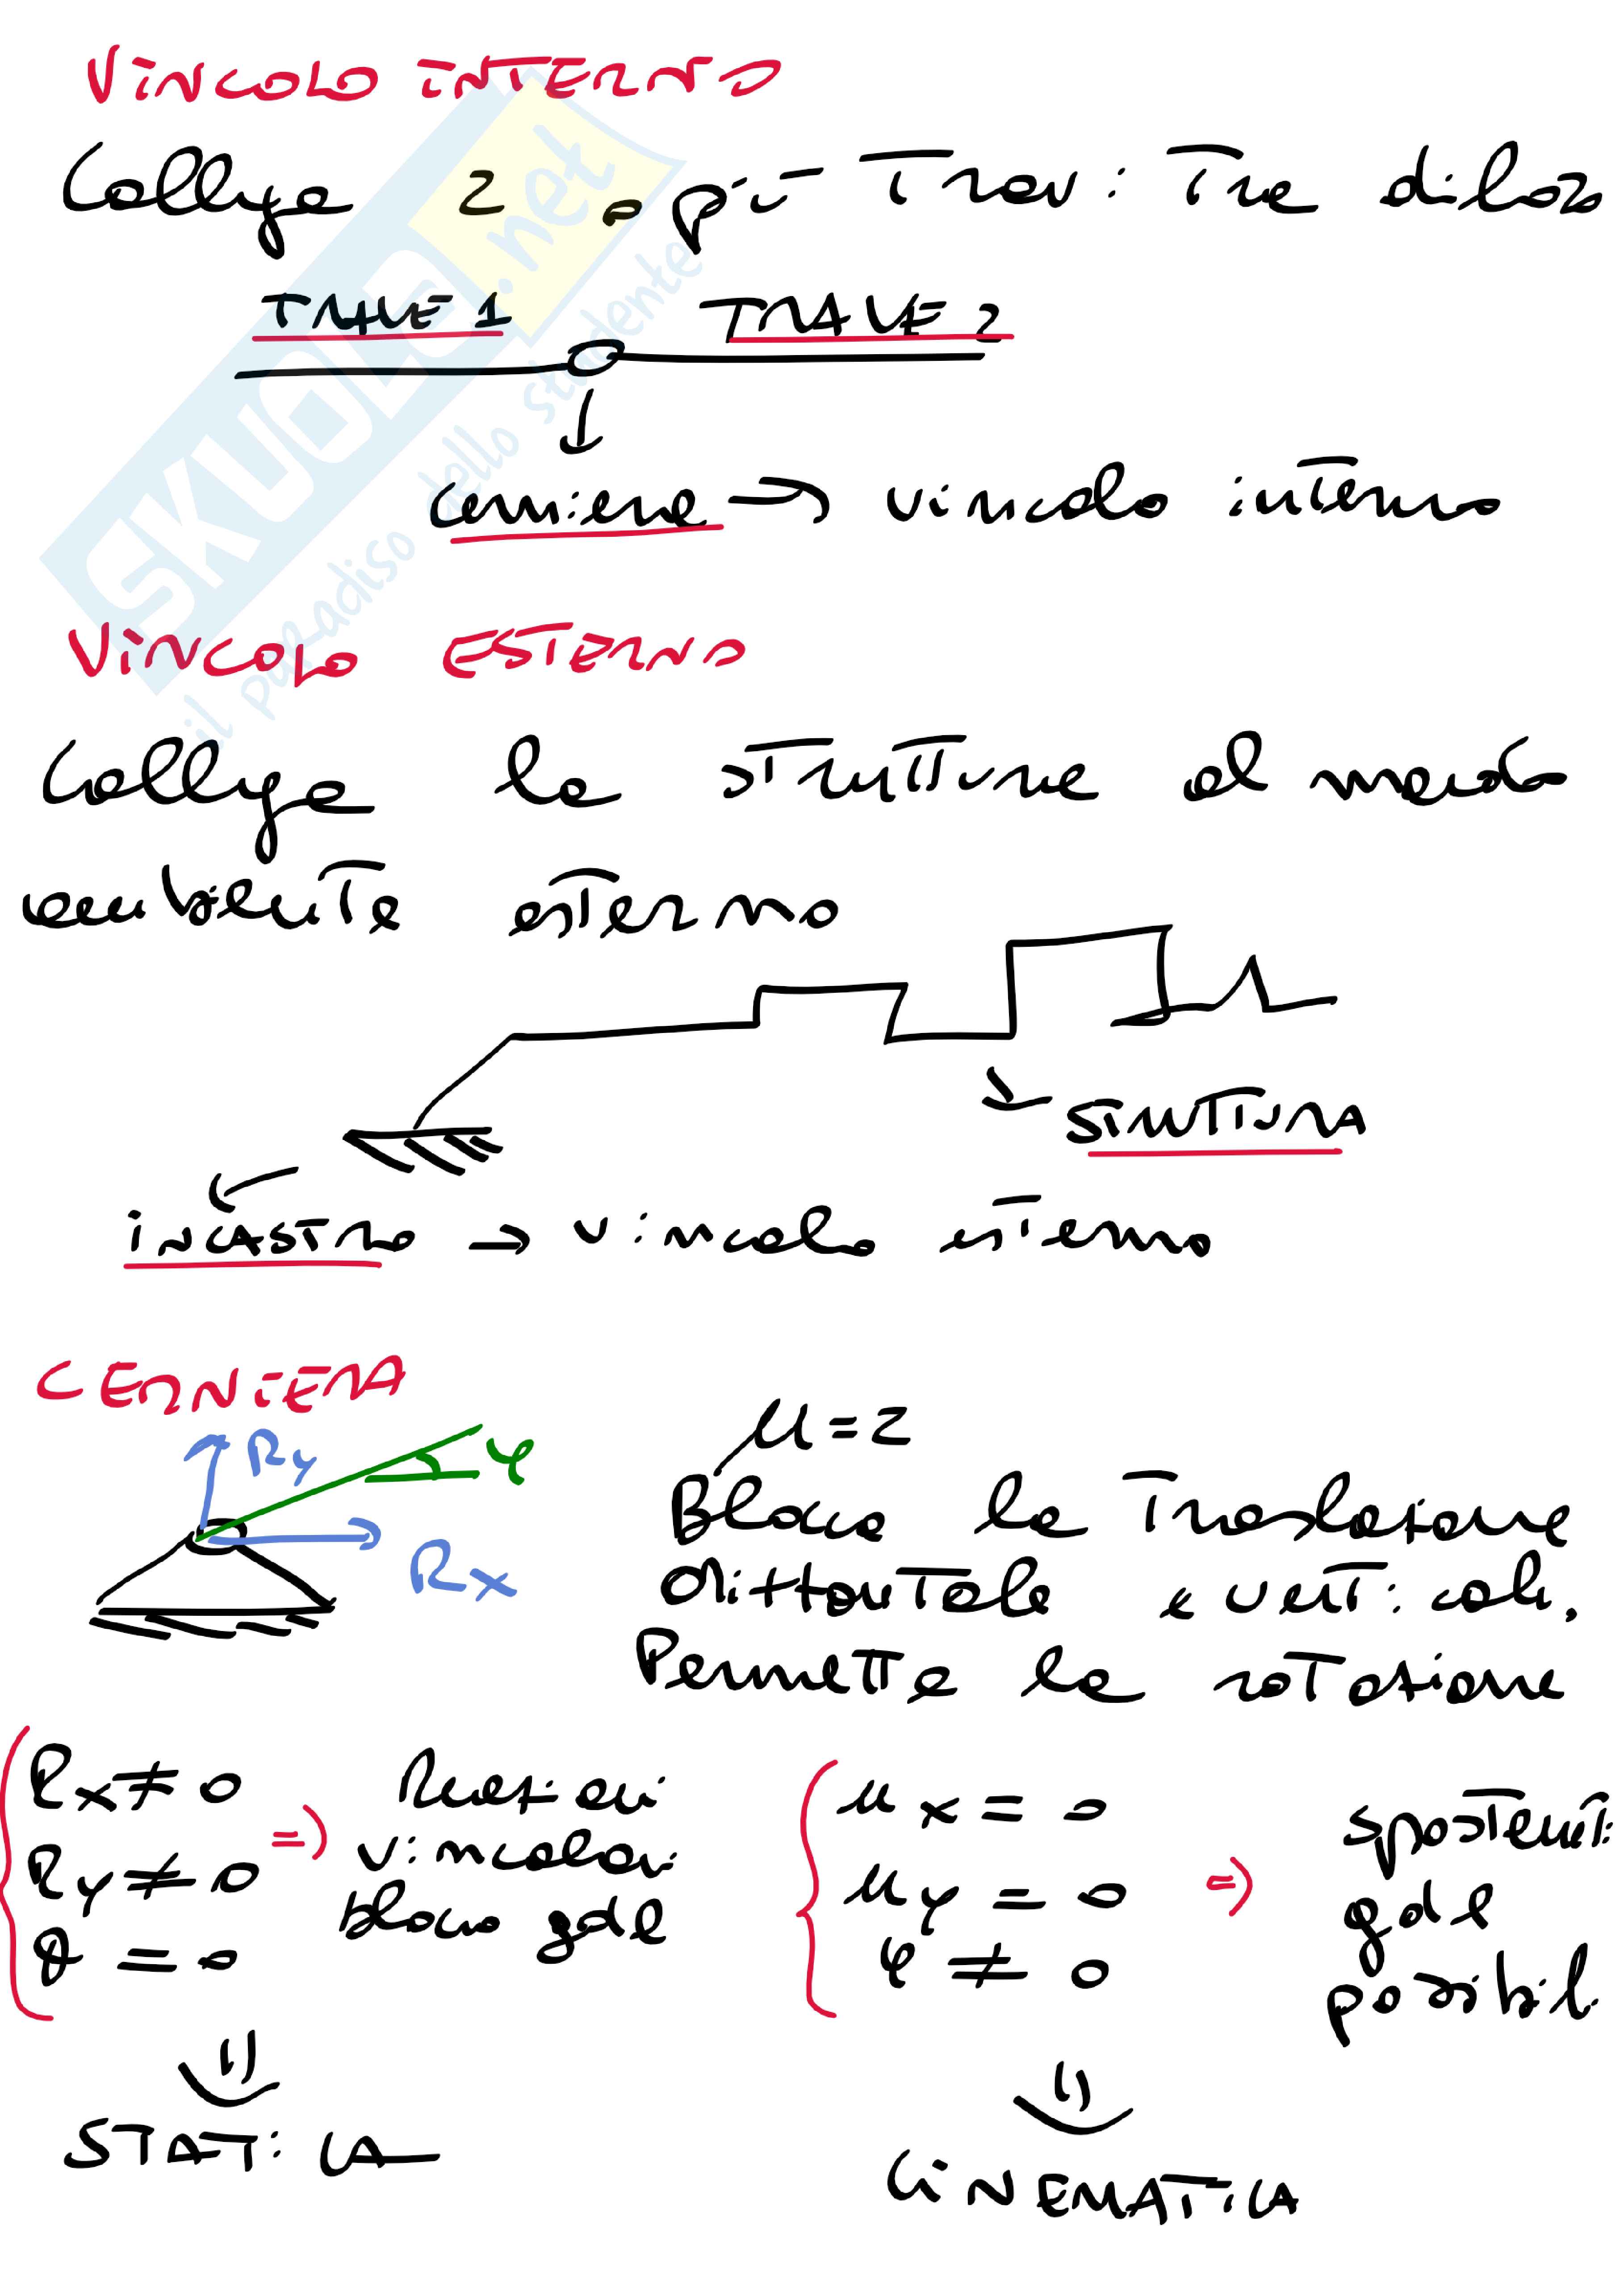 VINCOLO INTERNO
Collega 2 o più travi tra di loro
TRAVE 1 TRAVE 2
Cerniera → vincolo interno
VINCOLO ESTERNO
Collega la struttura al mondo
ambiente esterno
STRUTTURA
INCASTRO → vincolo esterno
CERNIERA
Ry φ
Rx
μ=2
Blocca la traslazione
orizzontale e verticale.
Permette la rotazione
Rx ≠ 0
Ry ≠ 0
φ = 0
⇒ Reazioni
vincolari
blocco gdl
ux = 0
uy = 0
φ ≠ 0
⇒ spostamenti
gdl
possibili
STATICA
CINEMATICA
SKUOLA.net
il paradiso dello studente